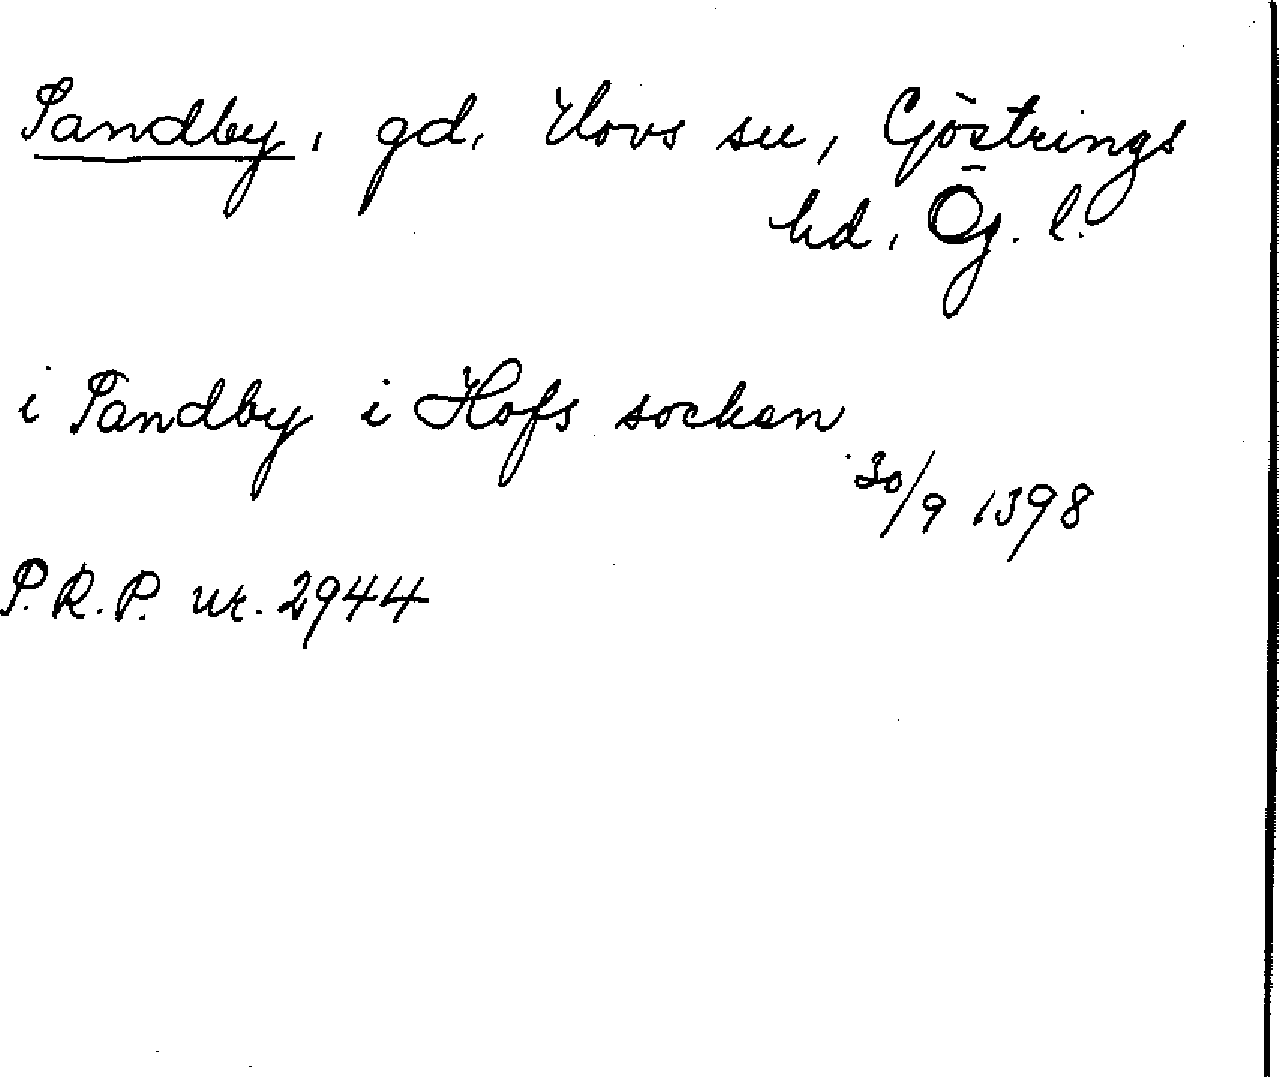 Sandby, gd, Hovs sn, Göstrings
hd, Ög. l.
i Sandby i Hofs socken
30/9 1398
S.R.P. nr. 2944